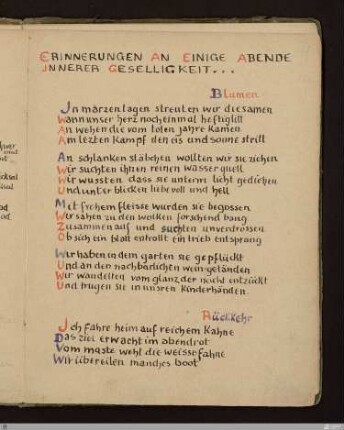 ERINNERUNGEN AN EINIGE ABENDE
INNERER GESELLIGKEIT...
Blumen
In märzentagen streuten wir die samen
Wann unser herz noch einmal heftig litt
An wehen die vom toten jahre kamen
Am lezten kampf den eis und sonne stritt
An schlanken stäbchen wollten wir sie ziehen
Wir suchten ihnen reinen wasserquell
Wir wussten dass sie unterm licht gediehen
Und unter blicken liebevoll und hell
Mit frohem fleisse wurden sie begossen
Wir sahen zu den wolken forschend bang
Zusammen auf und suchten unverdrossen
Ob sich ein blatt entrollt ein trieb entsprang
Wir haben in dem garten sie gepflückt
Und an den nachbarlichen weingeländen
Wir wandelten vom glanz der nacht entzückt
Und trugen sie in unsren kinderhänden.
Rückkehr
Ich fahre heim auf reichem kahne
Das ziel erwacht im abendrot
Vom maste weht die weisse fahne
Wir übereilen manches boot